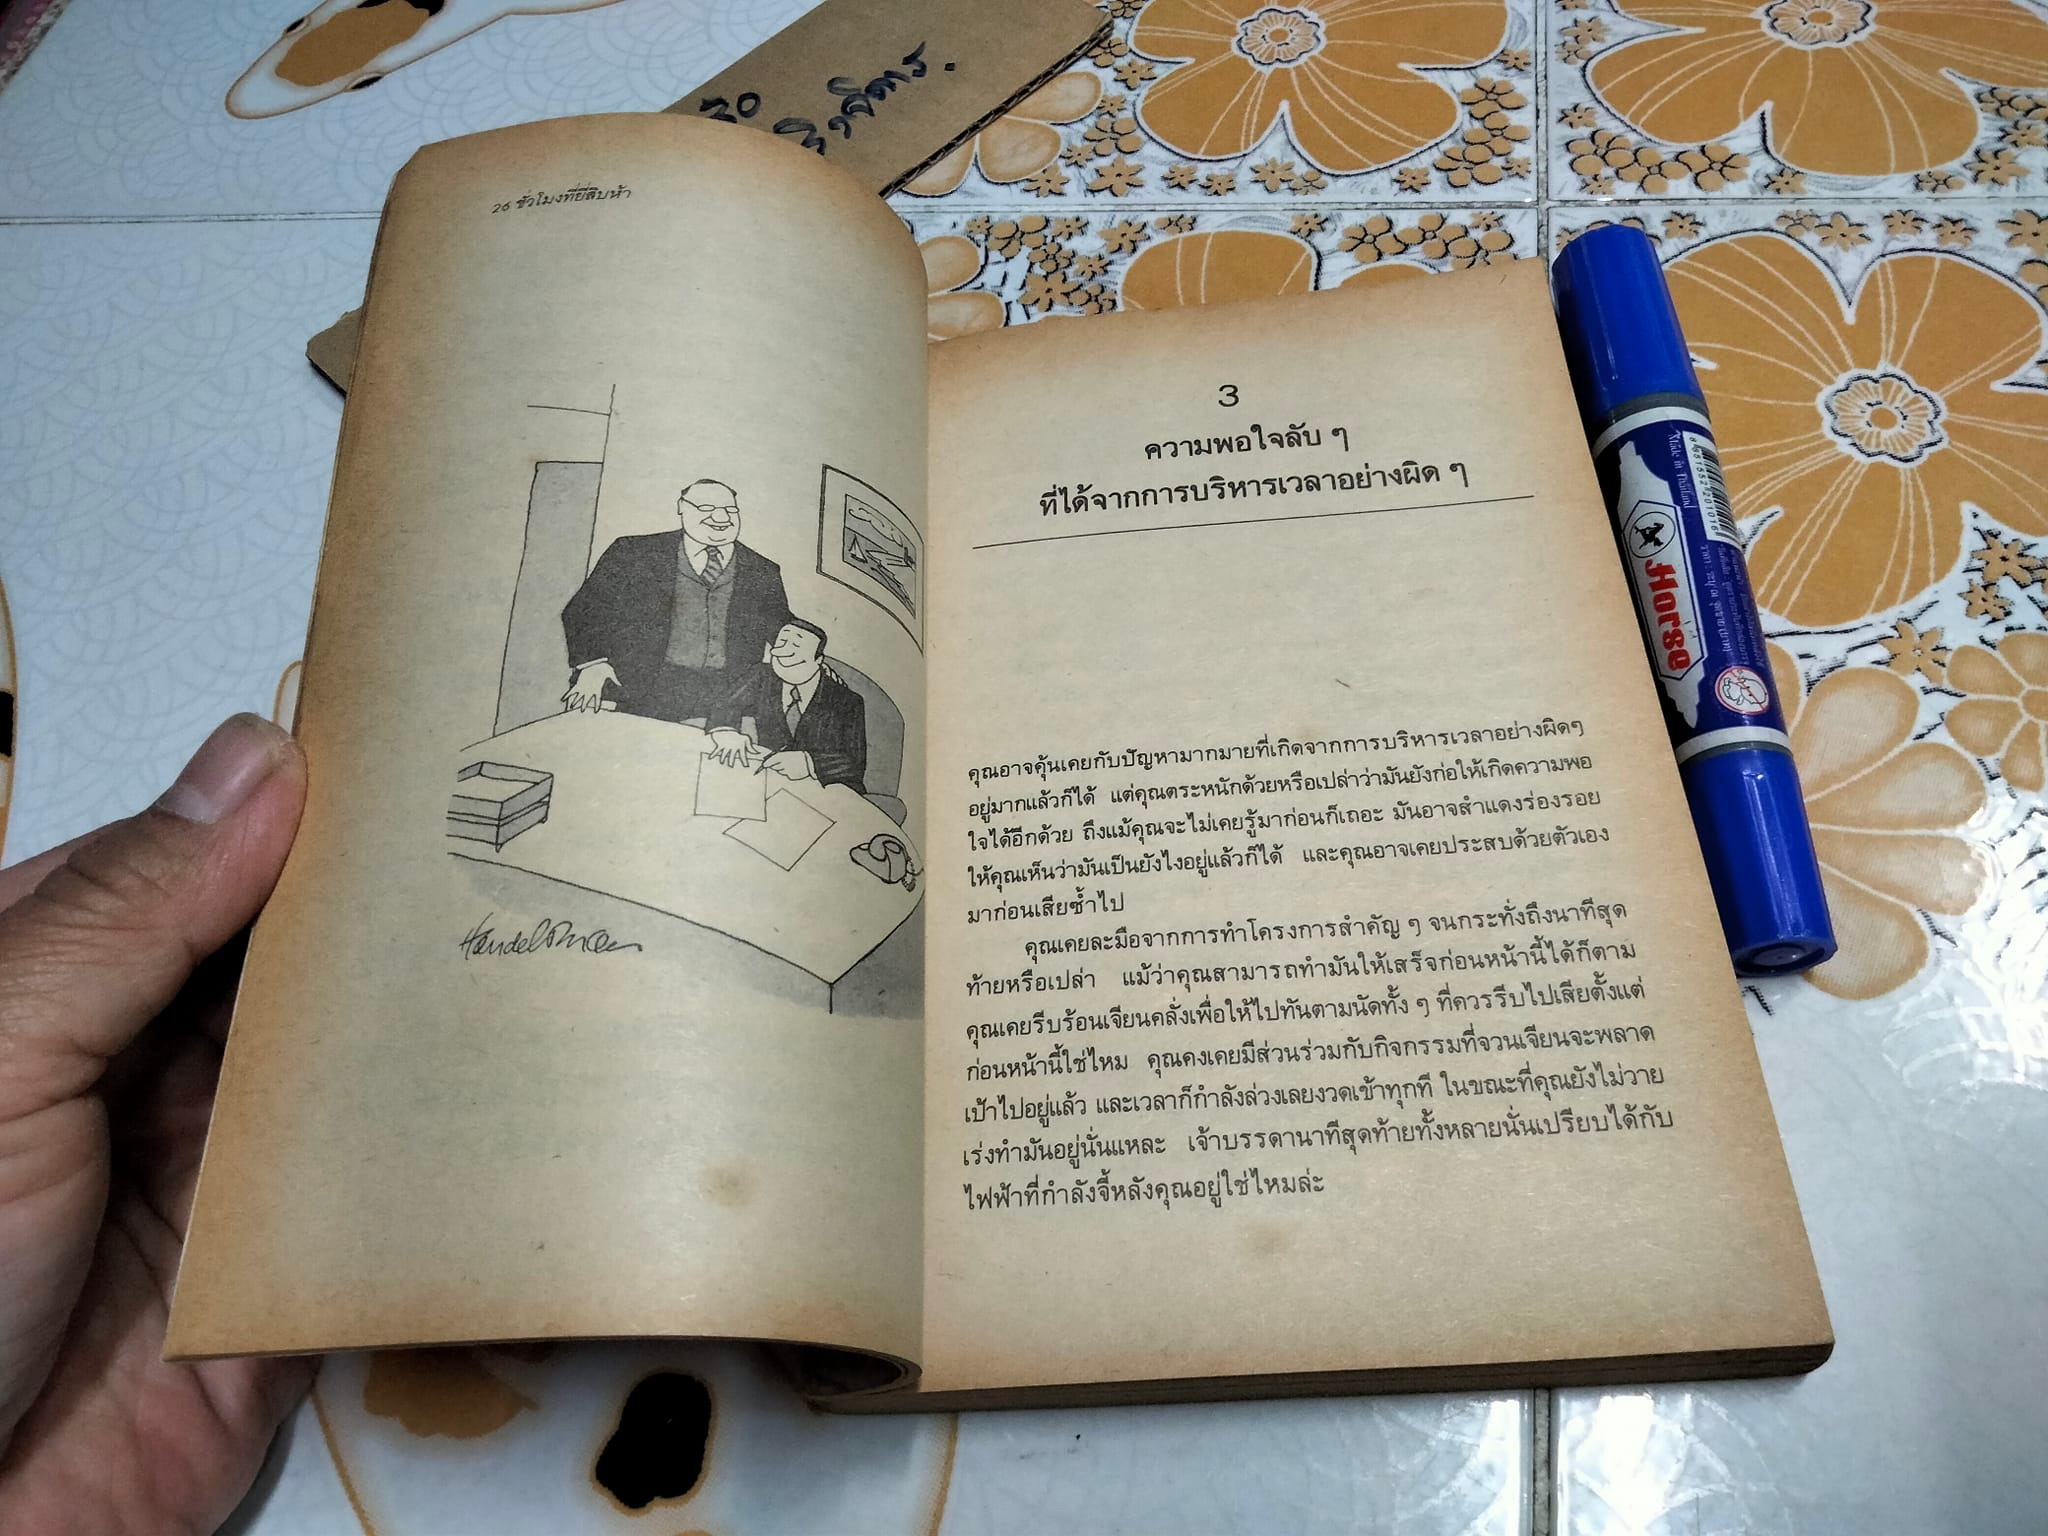 26 ชั่วโมงที่ยี่สิบห้า
Handelsman
3
ความพอใจลับ ๆ
ที่ได้จากการบริหารเวลาอย่างผิด ๆ
คุณอาจคุ้นเคยกับปัญหามากมายที่เกิดจากการบริหารเวลาอย่างผิดๆ
อยู่มากแล้วก็ได้ แต่คุณตระหนักด้วยหรือเปล่าว่ามันยังก่อให้เกิดความพอ
ใจได้อีกด้วย ถึงแม้คุณจะไม่เคยรู้มาก่อนก็เถอะ มันอาจสำแดงร่องรอย
ให้คุณเห็นว่ามันเป็นยังไงอยู่แล้วก็ได้ และคุณอาจเคยประสบด้วยตัวเอง
มาก่อนเสียซ้ำไป
คุณเคยละมือจากการทำโครงการสำคัญ ๆ จนกระทั่งถึงนาทีสุด
ท้ายหรือเปล่า แม้ว่าคุณสามารถทำมันให้เสร็จก่อนหน้านี้ได้ก็ตาม
คุณเคยรีบร้อนเจียนคลั่งเพื่อให้ไปทันตามนัดทั้ง ๆ ที่ควรรีบไปเสียตั้งแต่
ก่อนหน้านี้ใช่ไหม คุณคงเคยมีส่วนร่วมกับกิจกรรมที่จวนเจียนจะพลาด
เป้าไปอยู่แล้ว และเวลาก็กำลังล่วงเลยงวดเข้าทุกที ในขณะที่คุณยังไม่วาย
เร่งทำมันอยู่นั่นแหละ เจ้าบรรดานาทีสุดท้ายทั้งหลายนั่นเปรียบได้กับ
ไฟฟ้าที่กำลังจี้หลังคุณอยู่ใช่ไหมล่ะ
Horse
Made in Thailand
8 851552 201016